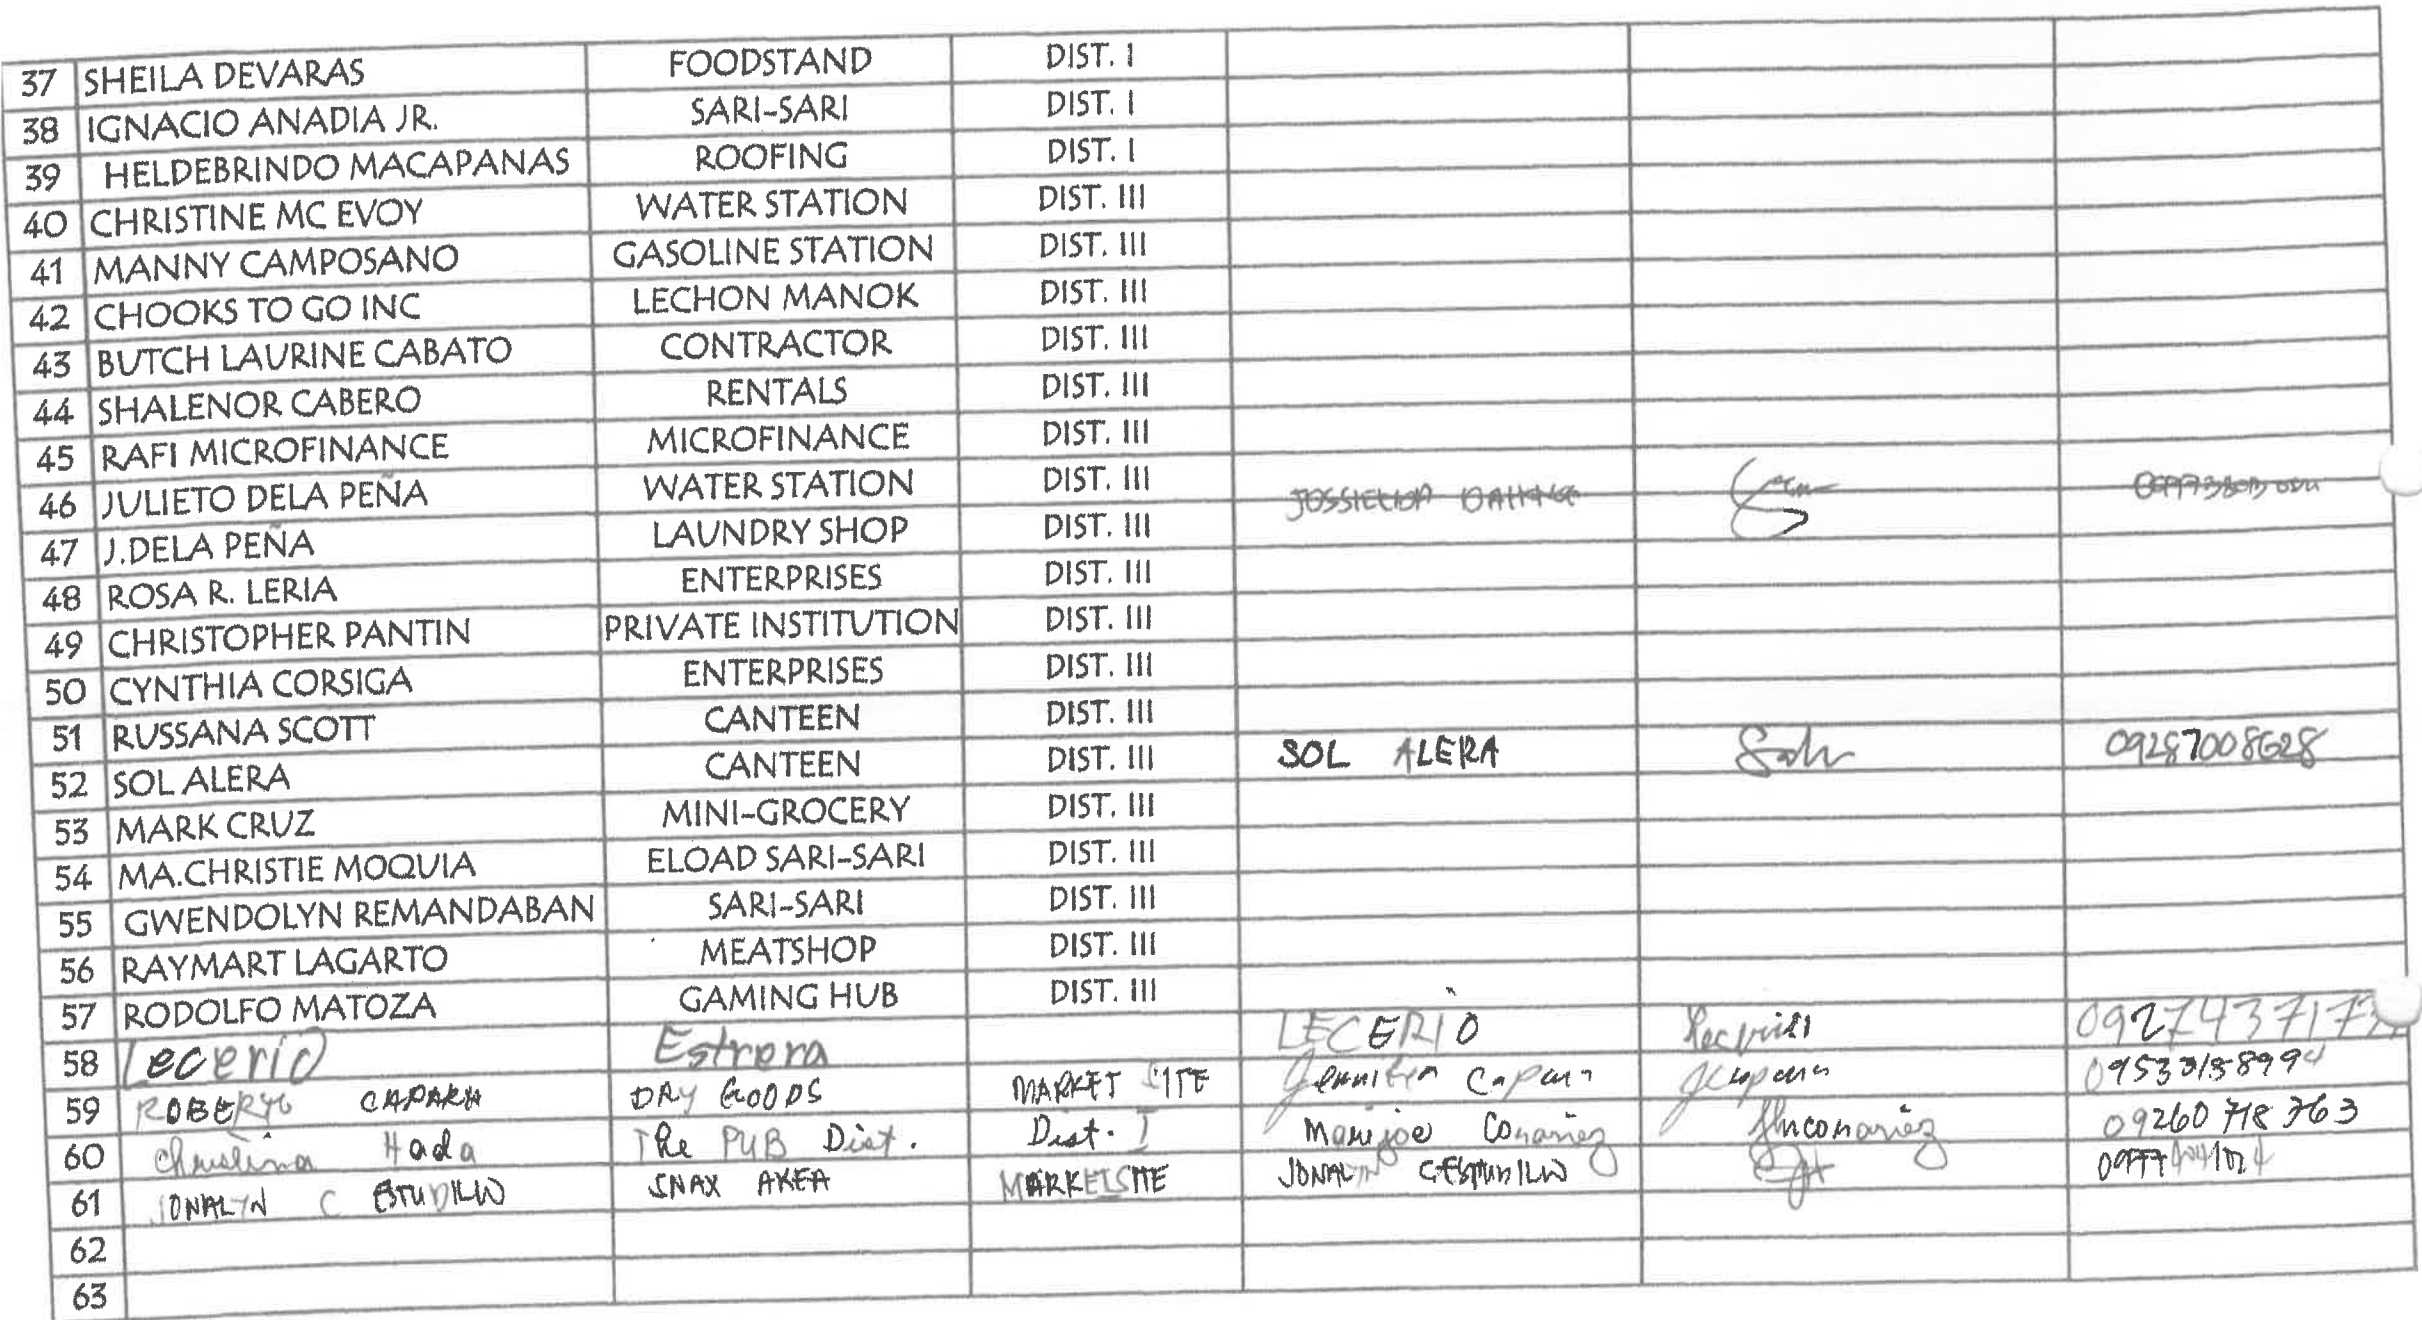 37 SHEILA DEVARAS FOODSTAND DIST. I
38 IGNACIO ANADIA JR. SARI-SARI DIST. I
39 HELDEBRINDO MACAPANAS ROOFING DIST. I
40 CHRISTINE MC EVOY WATER STATION DIST. III
41 MANNY CAMPOSANO GASOLINE STATION DIST. III
42 CHOOKS TO GO INC LECHON MANOK DIST. III
43 BUTCH LAURINE CABATO CONTRACTOR DIST. III
44 SHALENOR CABERO RENTALS DIST. III
45 RAFI MICROFINANCE MICROFINANCE DIST. III
46 JULIETO DELA PEÑA WATER STATION DIST. III
47 J.DELA PEÑA LAUNDRY SHOP DIST. III
48 ROSA R. LERIA ENTERPRISES DIST. III
49 CHRISTOPHER PANTIN PRIVATE INSTITUTION DIST. III
50 CYNTHIA CORSIGA ENTERPRISES DIST. III
51 RUSSANA SCOTT CANTEEN DIST. III
52 SOL ALERA CANTEEN DIST. III SOL ALERA 09287008628
53 MARK CRUZ MINI-GROCERY DIST. III
54 MA.CHRISTIE MOQUIA ELOAD SARI-SARI DIST. III
55 GWENDOLYN REMANDABAN SARI-SARI DIST. III
56 RAYMART LAGARTO MEATSHOP DIST. III
57 RODOLFO MATOZA GAMING HUB DIST. III
58 Lecerio Estrera LECERIO
59 ROBERTO DRY GOODS MARKET SITE
60 Christina Hada The PUB Dist. Dist. I Marijoe 09260718763
61 JONALYN C ESTUDILLO SNAX AREA MARKETSITE JONALYN
62
63